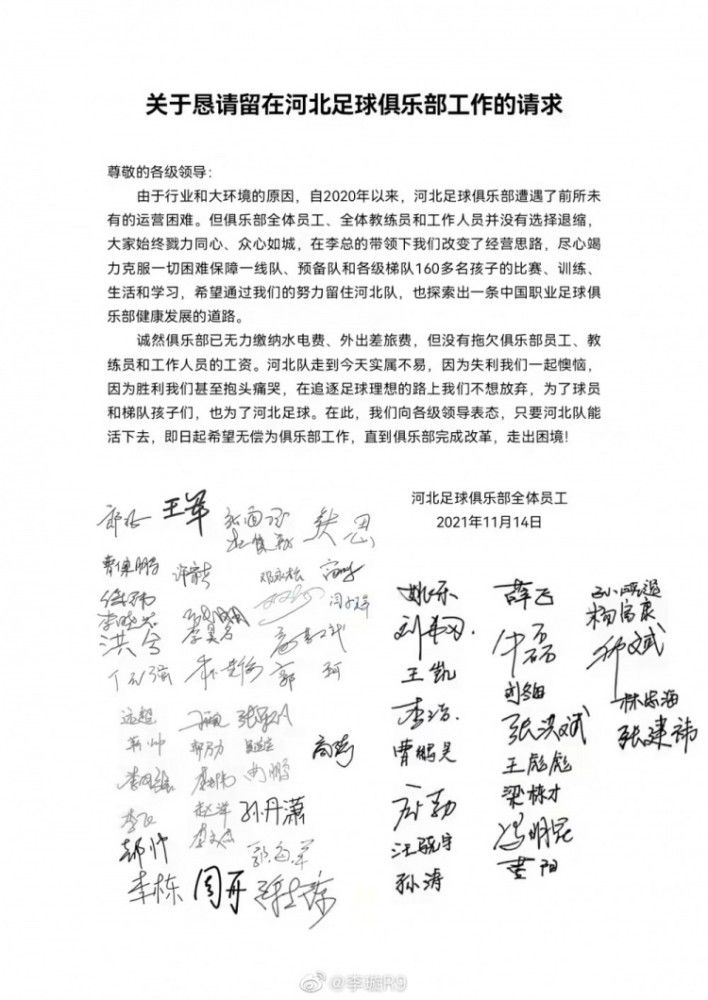 关于恳请留在河北足球俱乐部工作的请求
尊敬的各级领导：
由于行业和大环境的原因，自2020年以来，河北足球俱乐部遭遇了前所未
有的运营困难。但俱乐部全体员工、全体教练员和工作人员并没有选择退缩，
大家始终戮力同心、众心如城，在李总的带领下我们改变了经营思路，尽心竭
力克服一切困难保障一线队、预备队和各级梯队160多名孩子的比赛、训练、
生活和学习，希望通过我们的努力留住河北队，也探索出一条中国职业足球俱
乐部健康发展的道路。
诚然俱乐部已无力缴纳水电费、外出差旅费，但没有拖欠俱乐部员工、教
练员和工作人员的工资。河北队走到今天实属不易，因为失利我们一起懊恼，
因为胜利我们甚至抱头痛哭，在追逐足球理想的路上我们不想放弃，为了球员
和梯队孩子们，也为了河北足球。在此，我们向各级领导表态，只要河北队能
活下去，即日起希望无偿为俱乐部工作，直到俱乐部完成改革，走出困境！
河北足球俱乐部全体员工
2021年11月14日
王军
郭 珂
孙丹潇
李栋 周开
姚乐
王凯
李浩
曹鹏昊
孙涛
薛飞
牛磊
张洪斌
王彪彪
梁栋才
冯明昆
黄阳
杨富康
林宏海
张建祎
@李璇R9